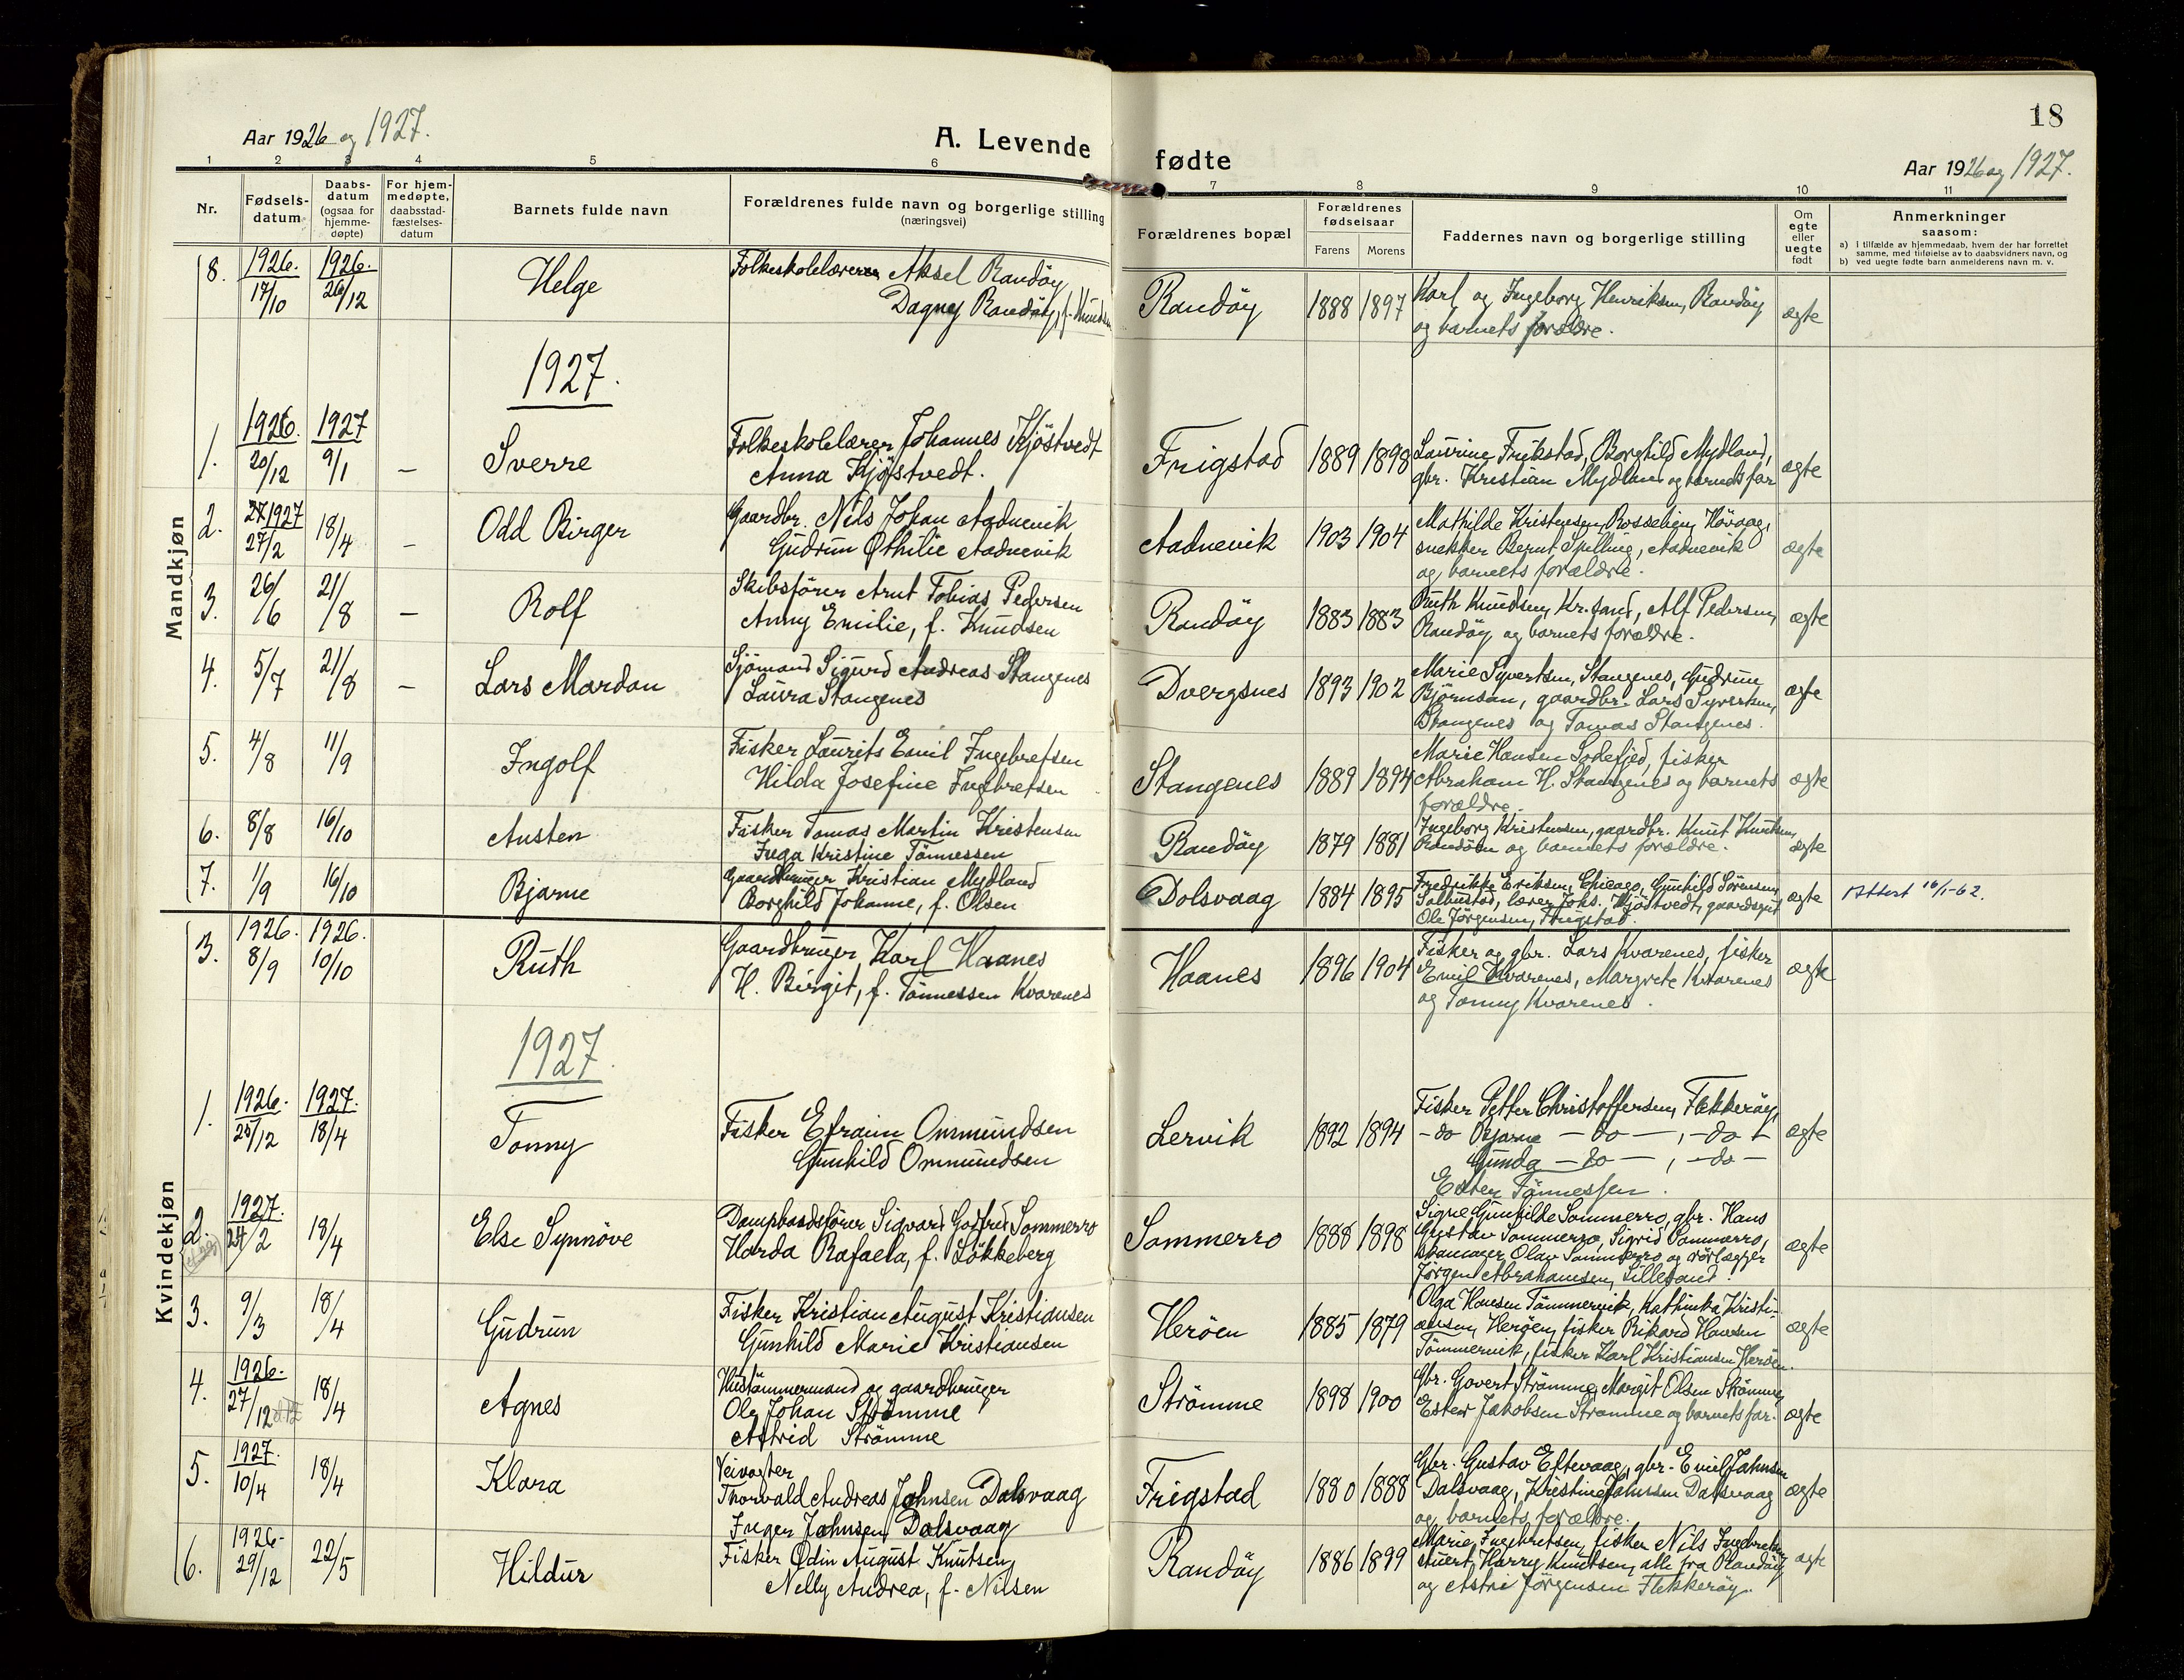 18
Aar 1926 og 1927.
A. Levende fødte
Aar 1926 og 1927.
1 2 3 4 5 6 7 8 9 10 11
Nr.
Fødsels-datum
Daabs-datum (ogsaa for hjemme-døpte)
For hjem-medøpte, daabsstad-fæstelses-datum
Barnets fulde navn
Forældrenes fulde navn og borgerlige stilling
(næringsvei)
Forældrenes bopæl
Forældrenes fødselsaar
Farens Morens
Faddernes navn og borgerlige stilling
Om egte eller uegte født
Anmerkninger
saasom:
a) i tilfælde av hjemmedaab, hvem der har forrettet samme, med tilføielse av to daabsvidners navn, og
b) ved uegte fødte barn anmelderens navn m. v.
Mandkjøn
8. 1926. 17/10 1926. 26/12 Helge
Folkeskolelærer Aksel Randöy
Dagny Randöy, f. Knudsen
Randöy 1888 1897
Karl og Ingeborg Henriksen, Randöy
og barnets forældre.
ægte
1927.
1. 1926. 20/12 1927 9/1 — Sverre
Folkeskolelærer Johannes Kjöstvedt
Anna Kjöstvedt.
Frigstad 1889 1898
Laurine Frikstad, Borghild Mydland,
gbr. Kristian Mydland og barnets far
ægte
2. 1927 27/2 18/4 — Odd Birger
Gaardbr. Nils Johan Aadnevik
Gudrun Othilie Aadnevik
Aadnevik 1903 1904
Mathilde Kristensen, Hövaag,
snekker Bernt Spilling, Aadnevik
og barnets forældre.
ægte
3. 26/6 21/8 — Rolf
Skibsförer Arnt Tobias Pedersen
Anny Emilie, f. Knudsen
Randöy 1883 1883
Ruth Knudsen, Kr.sand, Alf Pedersen,
Randöy og barnets forældre.
ægte
4. 5/7 21/8 — Lars Mardon
Sjömand Sigurd Andreas Stangenes
Laura Stangenes
Dvergsnes 1893 1902
Marie Syvertsen, Stangenes, Gudrun
Björnsan, gaardbr. Lars Syvertsen,
Stangenes og Tomas Stangenes.
ægte
5. 4/8 11/9 Ingolf
Fisker Laurits Emil Ingebretsen
Hilda Josefine Ingebretsen
Stangenes 1889 1894
Marie Hansen Sodefjed, fisker
Abraham H. Stangenes og barnets
forældre.
ægte
6. 8/8 16/10 Austen
Fisker Tomas Martin Kristensen
Inga Kristine Tönnessen
Randöy 1879 1881
Ingeborg Kristensen, gaardbr. Knut Knutsen,
Randöen og barnets forældre.
ægte
7. 1/9 16/10 Bjarne
Gaardbruger Kristian Mydland
Borghild Johanne, f. Olsen
Dolsvaag 1884 1895
Fredrikke Eriksen, Chicago, Gunhild Sörensen,
Salbustad, lærer Johs. Kjöstvedt, gaardsgut
Ole Jörgensen, Frigstad.
ægte Attest 16/1-62.
Kvindekjøn
3. 1926. 8/9 1926. 10/10 Ruth
Gaardbruger Karl Haanes
H. Birgit, f. Tönnessen Kvarenes
Haanes 1896 1904
Fisker og gbr. Lars Kvarenes, fisker
Emil Kvarenes, Margrete Kvarenes
og Tonny Kvarenes.
ægte
1927.
1. 1926. 25/12 1927. 18/4 Tonny
Fisker Efraim Ommundsen
Gunhild Ommundsen
Lervik 1892 1894
Fisker Petter Christoffersen, Flekkeröy,
- do Bjarne — do — , - do -
Gunda — do — , — do —
Ester Tönnessen.
ægte
2. 1927. 24/2 18/4 Else Synnöve
Dampbaadsförer Sigvard Godfred Sommerro
Harda Rafaela, f. Lökkeberg
Sommerro 1888 1898
Signe Gunhilde Sommerro, gbr. Hans
Gustav Sommerro, Sigrid Sommerro,
skomager Olav Sommerro og rörlægger
Jörgen Abrahamsen, Lillesand.
ægte
3. 9/3 18/4 Gudrun
Fisker Kristian August Kristiansen
Gunhild Marie Kristiansen
Heröen 1885 1879
Olga Hansen Tömmervik, Kathinka Kristi-
ansen, Heröen, fisker Rikard Hansen
Tömmervik, fisker Karl Kristiansen Heröen.
ægte
4. 1926. 27/12 18/4 Agnes
Hustömmermand og gaardbruger
Ole Johan Strömme
Astrid Strömme
Strömme 1898 1900
Gbr. Govert Strömme, Margit Olsen Strömme,
Ester Jakobsen Strömme og barnets far.
ægte
5. 1927. 10/4 18/4 Klara
Veivogter
Thorvald Andreas Johnsen Dalsvaag
Inger Johnsen Dalsvaag
Frigstad 1880 1888
Gbr. Gustav Eftevaag, gbr. Emil Johnsen
Dalsvaag, Kristine Johnsen Dalsvaag
og barnets forældre.
ægte
6. 1926- 29/12 22/5 Hildur
Fisker Odin August Knutsen
Nelly Andrea, f. Nilsen
Randöy 1886 1899
Marie Ingebretsen, fisker Nils Ingebretsen,
stuert Harry Knutsen, alle fra Randöy
og Astri Jörgensen Flekkeröy.
ægte